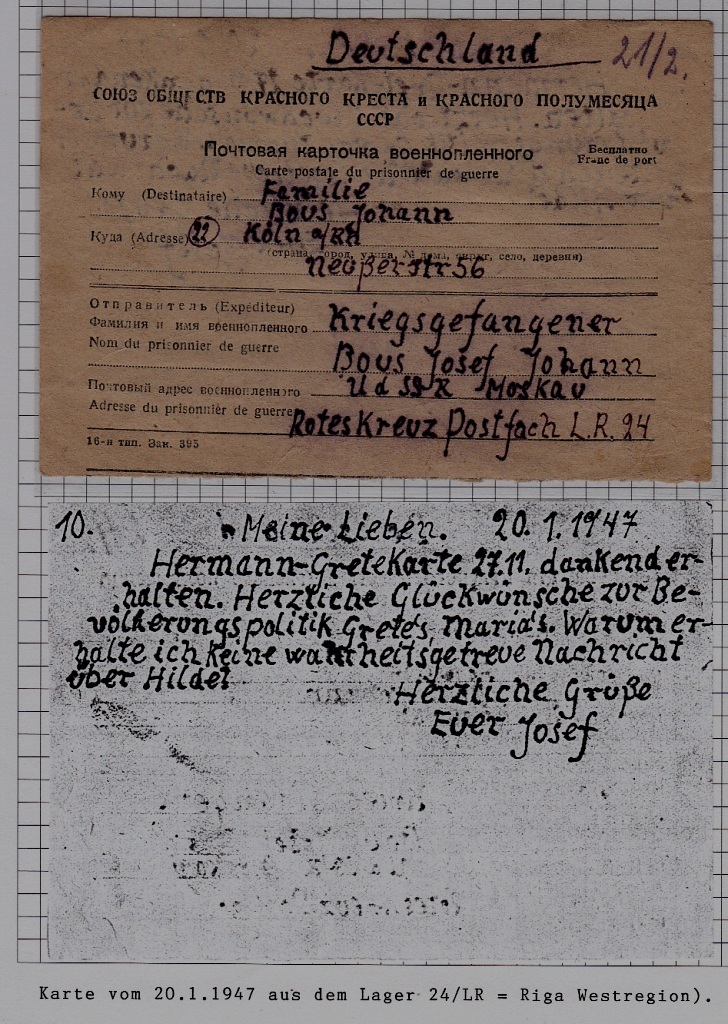 Deutschland 21/2.
СОЮЗ ОБЩЕСТВ КРАСНОГО КРЕСТА и КРАСНОГО ПОЛУМЕСЯЦА
СССР
Почтовая карточка военнопленного
Бесплатно
Carte postale du prisonnier de guerre
Franc de port
Кому (Destinataire) Familie
Bovs Johann
Куда (Adresse) 22 Köln a/RH
(страна, город, улица, № дома, округ, село, деревня)
Neußerstr 56
Отправитель (Expéditeur)
Фамилия и имя военнопленного Kriegsgefangener
Nom du prisonnier de guerre
Bovs Josef Johann
Почтовый адрес военнопленного UdSSR Moskau
Adresse du prisonnier de guerre Rotes Kreuz Postfach L.R. 24
16-я тип. Зак. 395
10. Meine Lieben. 20.1.1947
Hermann-Gretekarte 27.11. dankend er-
halten. Herzliche Glückwünsche zur Be-
völkerungspolitik Grete's, Maria's. Warum er-
halte ich keine wahrheitsgetreue Nachricht
über Hilde?
Herzliche Grüße
Euer Josef
Karte vom 20.1.1947 aus dem Lager 24/LR = Riga Westregion).